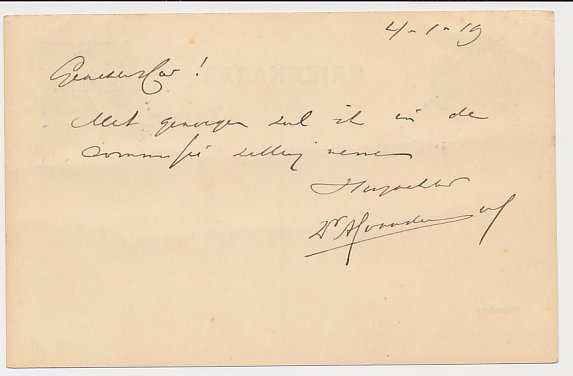 4-1-19
Geachte Heer!
Met genoegen zal ik in de
commissie zitting nemen
Hoogachtend
Dr A